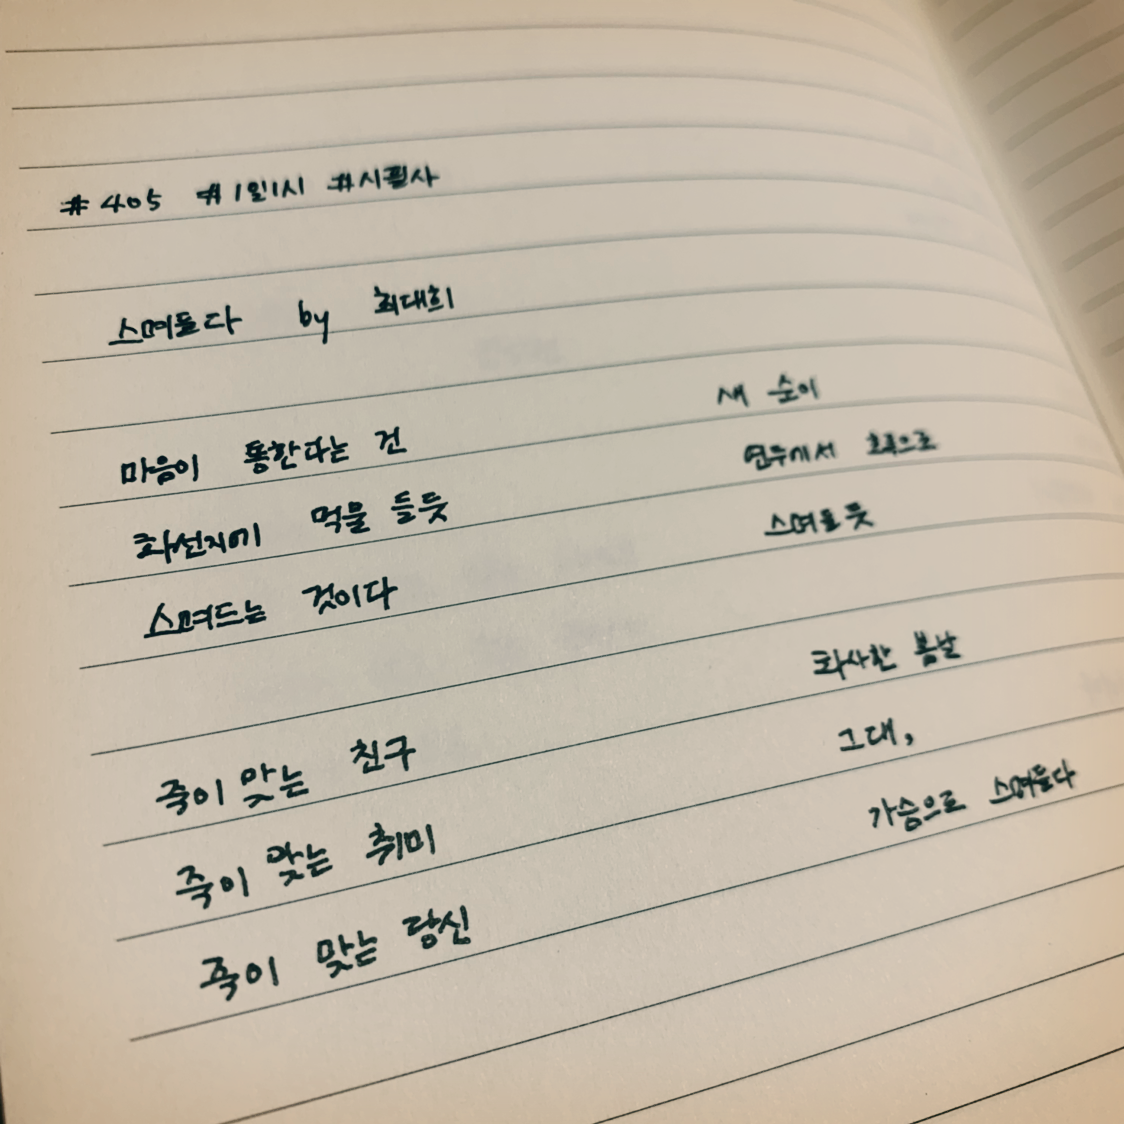 #405 #1일1시 #시필사
스며들다 by 최대희
마음이 통한다는 건
화선지에 먹물 들듯
스며드는 것이다
죽이 맞는 친구
죽이 맞는 취미
죽이 맞는 당신
새 순이
연두에서 초록으로
스며들 듯
화사한 봄날
그대,
가슴으로 스며들다